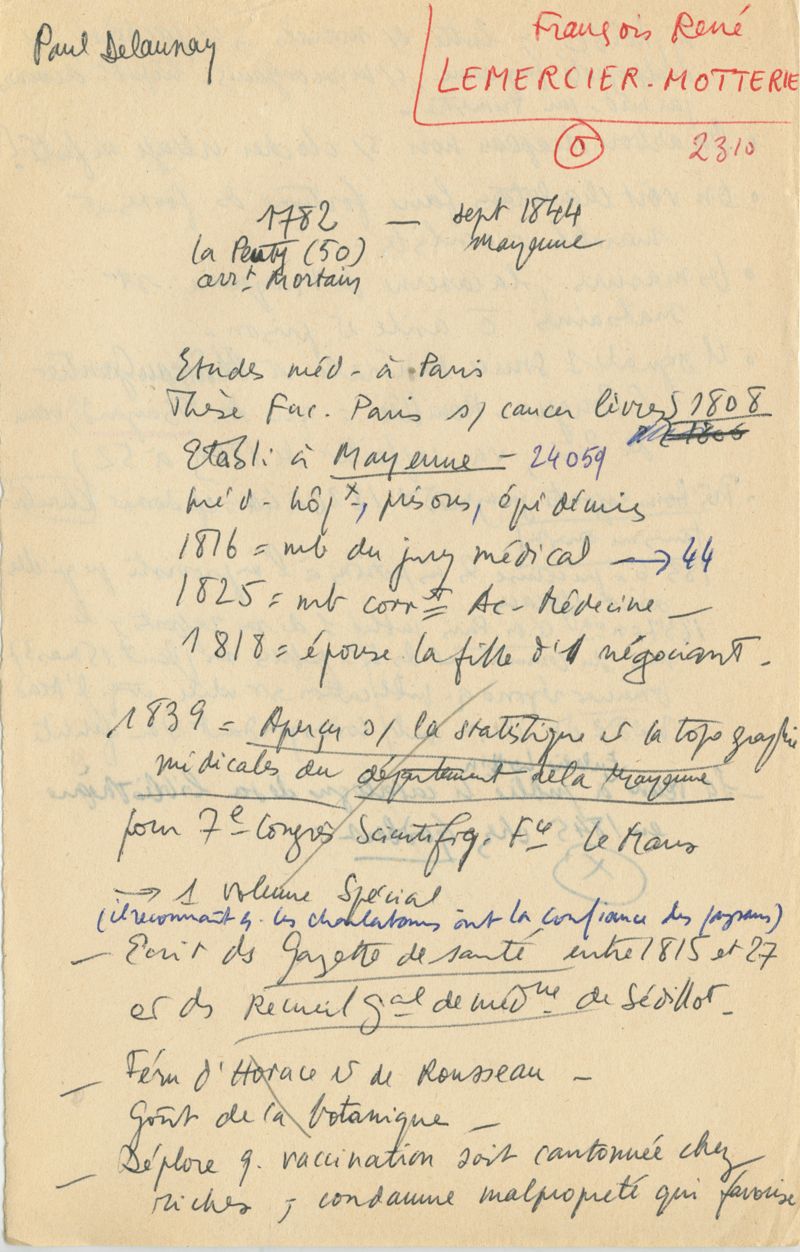 Paul Delaunay
François René
LEMERCIER-MOTTERIE
O 2310
1782 — sept 1844
la (50) Mayenne
arrt Mortain
Etudes méd - à Paris
Thèse Fac. Paris s/ cancer lèvres 1808
Etabli à Mayenne - 24059
méd - hôpx, prisons, épidémies
1816 = mb du jury médical → 44
1825 = mb corrt Ac - Médecine —
1818 = épouse la fille d'1 négociant -
1839 = Aperçu s/ la statistique et la topographie
médicales du département de la Mayenne
pour 7e Congrès Scientifiq. Fse Le Mans
→ 1 volume Spécial
(il reconnaît q. les charlatans ont la confiance des paysans)
— Ecrit ds Gazette de santé entre 1815 et 27
et ds Recueil gal de médne de Sédillot -
— Féru d'Horace et de Rousseau —
Goût de la botanique —
— Déplore q. vaccination soit cantonnée chez
riches ; condamne malpropreté qui favorise